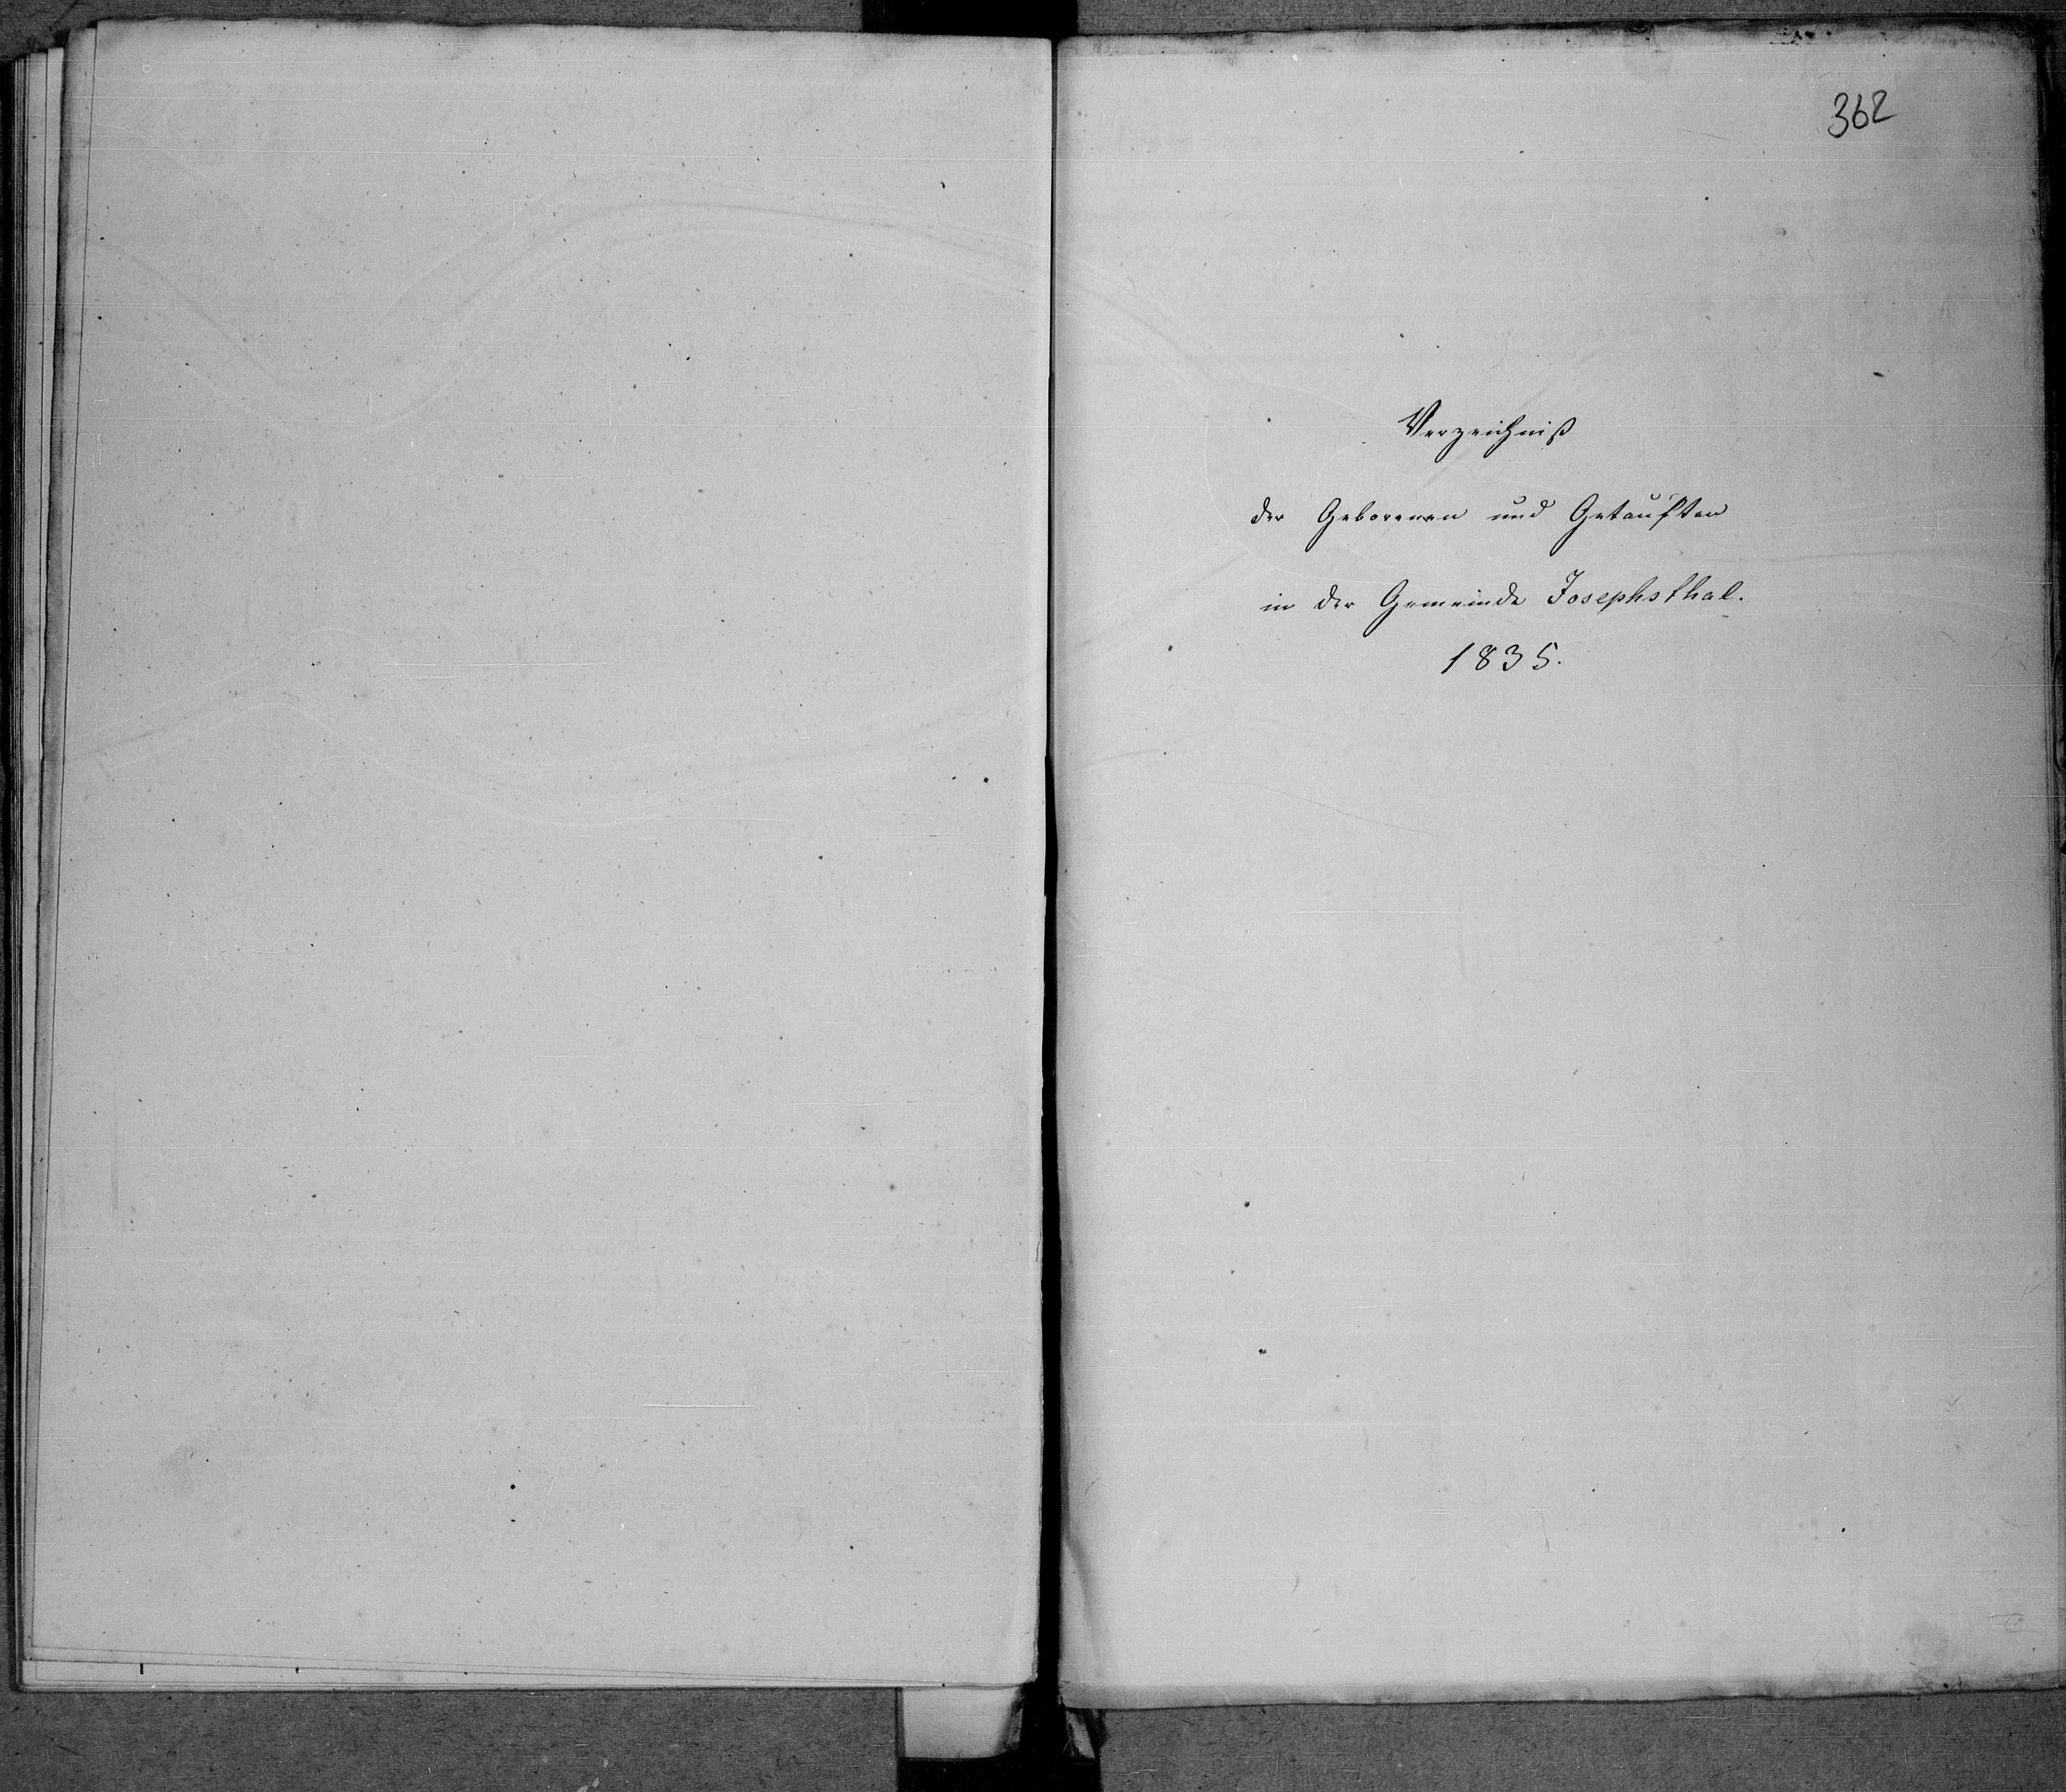 362
Verzeichniß
der Geborenen und Getauften
in der Gemeinde Josephsthal.
1835.